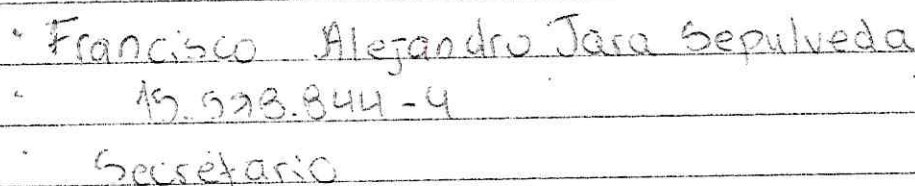 Francisco Alejandro Jara Sepulveda
15.598.844-4
Secretario